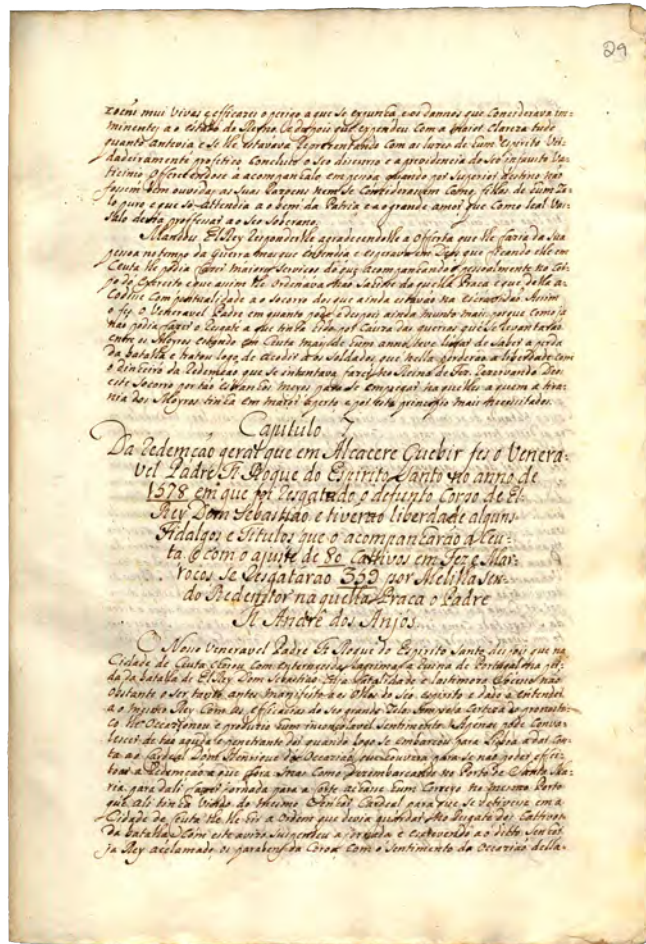 29
zoens mui vivas e efficazes o perigo a que se expunha, e os damnos que considerava im=
minentes ao estado do Reyno. E depois que expendeu com a maior clareza tudo
quanto antevia e se lhe estava representando com as luzes de hum espirito Ver
dadeiramente profetico Concluio o seo discurso e a providencia do seo infausto Va=
ticinio offerecendose a acompanhalo em pessoa quando por superior destino não
fossem bem ouvidas as suas Razoens nem se considerassem como filhas de hum Ze=
lo puro, e que só attendia ao bem da Patria e ao grande amor que como leal Vas=
salo devia professar ao seo soberano.
Mandou El Rey responderlhe agradecendolhe a offerta que lhe fazia da sua
pessoa no tempo da guerra mas que entendia e esperava em Deos que ficando elle em
Ceuta lhe podia fazer maiores serviços do que acompanhando pessoalmente no Cor=
po do Exercito e que assim lhe ordenava não sahisse daquella Praça e que della a=
codisse com pontualidade ao socorro dos que ainda estavão na escravidão. Assim
o fes o Veneravel Padre em quanto pode, e depois ainda muito mais, porque como ja
não podia fazer o Resgate a que tinha hido por causa das guerras que se levantarão
entre os Moyros estando em Ceuta mais de hum anno, teve lugar de saber a perda
da batalha e tratou logo de acodir aos soldados que nella perderão a liberdade com
o dinheiro da Redemção que se intentava fazer no Reino de Fez.
este socorro por tão estranhos meyos para se empregar naquelles a quem a tira=
nia dos Moyros tinha em maior aperto e por este principio mais necessitados.
Capitulo 7
Da Redemção geral que em Alcacere Quebir fes o Venera=
vel Padre Fr. Roque do Espirito Santo no anno de
1578 em que foi Resgatado o defunto Corpo de El
Rey Dom Sebastião e tiverão liberdade alguns
Fidalgos e Titulos que o acompanharão a Ceu=
ta e com o ajuste de 80 Cattivos em Fez e Mar=
rocos se Resgatarão 359 por Melilla sen=
do Redemptor naquella Praça o Padre
Fr. André dos Anjos.
O Nosso Veneravel Padre Fr. Roque do Espirito Santo depois que na
Cidade de Ceuta chorou com enternecidas lagrimas a ruina de Portugal na per=
da da batalha de El Rey Dom Sebastião. Esta fatalidade e lastimoso não
obstante o ser tanto antes manifesto aos olhos do seo espirito e dado a entender
a o Rey com as efficacias do seo grande Zelo
lhe occazionou e produzio hum inconsolavel sentimento. Apenas pode conva=
lescer de tão aguda e penetrante dor quando logo se embarcou para Lisboa a dar con=
ta ao Cardeal Dom Henrique da occazião que houvera para se não poder effei=
tuar a Redemção a que fora. Mas como dezembarcando no Porto de Santa Ma=
ria para dali fazer jornada para a Corte achase hum Correyo no mesmo Porto
que ali tinha vindo do mesmo Senhor Cardeal para que se detivesse em a
Cidade de Ceuta lhe a ordem que devia guardar no Resgate dos Cattivos
da batalha. Com este aviso suspendeu a jornada e escrevendo ao ditto Senhor
ja Rey acclamado os parabens da Coroa com o sentimento da occazião della